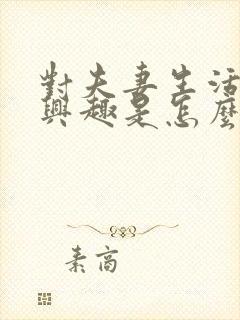 對夫妻生活
興趣是怎麼
素高